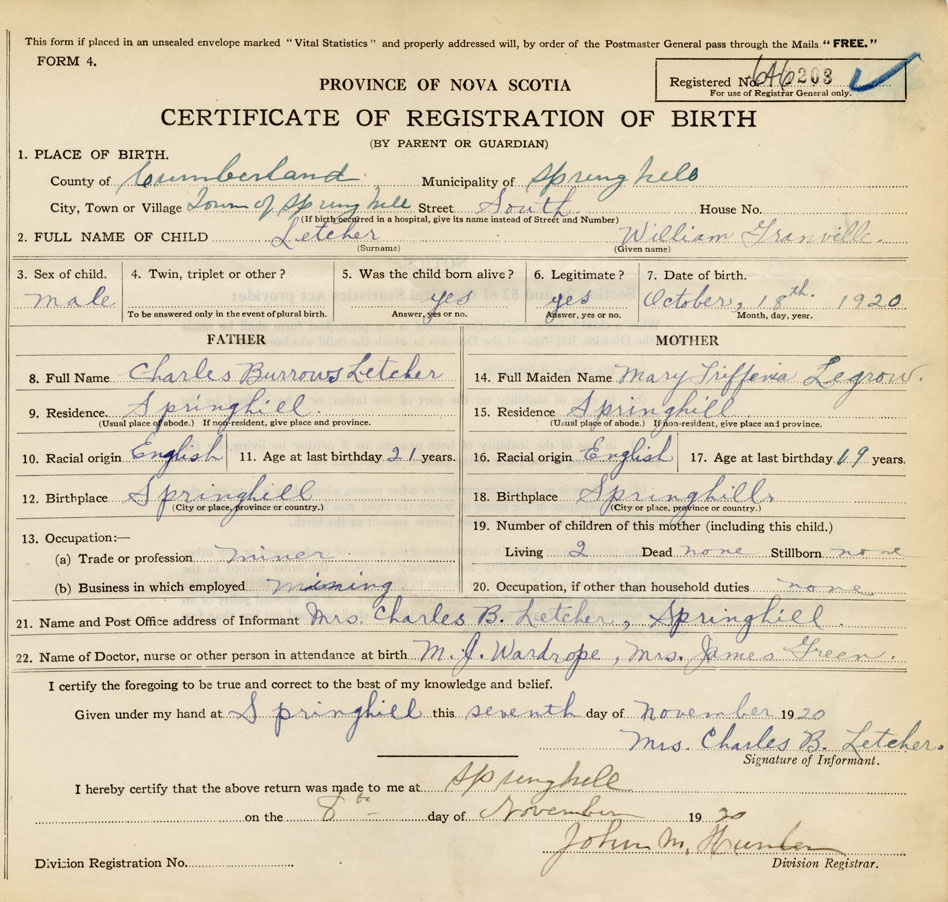 This form if placed in an unsealed envelope marked "Vital Statistics" and properly addressed will, by order of the Postmaster General pass through the Mails "FREE."
FORM 4.
Registered No. 646203
For use of Registrar General only.
PROVINCE OF NOVA SCOTIA
CERTIFICATE OF REGISTRATION OF BIRTH
(BY PARENT OR GUARDIAN)
1. PLACE OF BIRTH.
County of Cumberland Municipality of Springhill
City, Town or Village Town of Springhill Street South House No.
(If birth occurred in a hospital, give its name instead of Street and Number)
2. FULL NAME OF CHILD Letcher William Granville
(Surname) (Given name)
3. Sex of child. 4. Twin, triplet or other? 5. Was the child born alive? 6. Legitimate? 7. Date of birth.
male yes yes October, 18th. 1920
To be answered only in the event of plural birth. Answer, yes or no. Answer, yes or no. Month, day, year.
FATHER MOTHER
8. Full Name Charles Burrows Letcher 14. Full Maiden Name Mary Triffenia Legrow.
9. Residence. Springhill. 15. Residence Springhill
(Usual place of abode.) If non-resident, give place and province. (Usual place of abode.) If non-resident, give place and province.
10. Racial origin English 11. Age at last birthday 21 years. 16. Racial origin English 17. Age at last birthday 19 years.
12. Birthplace Springhill 18. Birthplace Springhill
(City or place, province or country.) (City or place, province or country.)
13. Occupation:— 19. Number of children of this mother (including this child.)
(a) Trade or profession miner Living 2 Dead none Stillborn none
(b) Business in which employed mining 20. Occupation, if other than household duties none
21. Name and Post Office address of Informant Mrs. Charles B. Letcher, Springhill.
22. Name of Doctor, nurse or other person in attendance at birth M. J. Wardrope, Mrs. James Green.
I certify the foregoing to be true and correct to the best of my knowledge and belief.
Given under my hand at Springhill this seventh day of November 1920
Mrs. Charles B. Letcher.
Signature of Informant.
I hereby certify that the above return was made to me at Springhill
on the 8th day of November 1920
John M. Hunter
Division Registration No. Division Registrar.